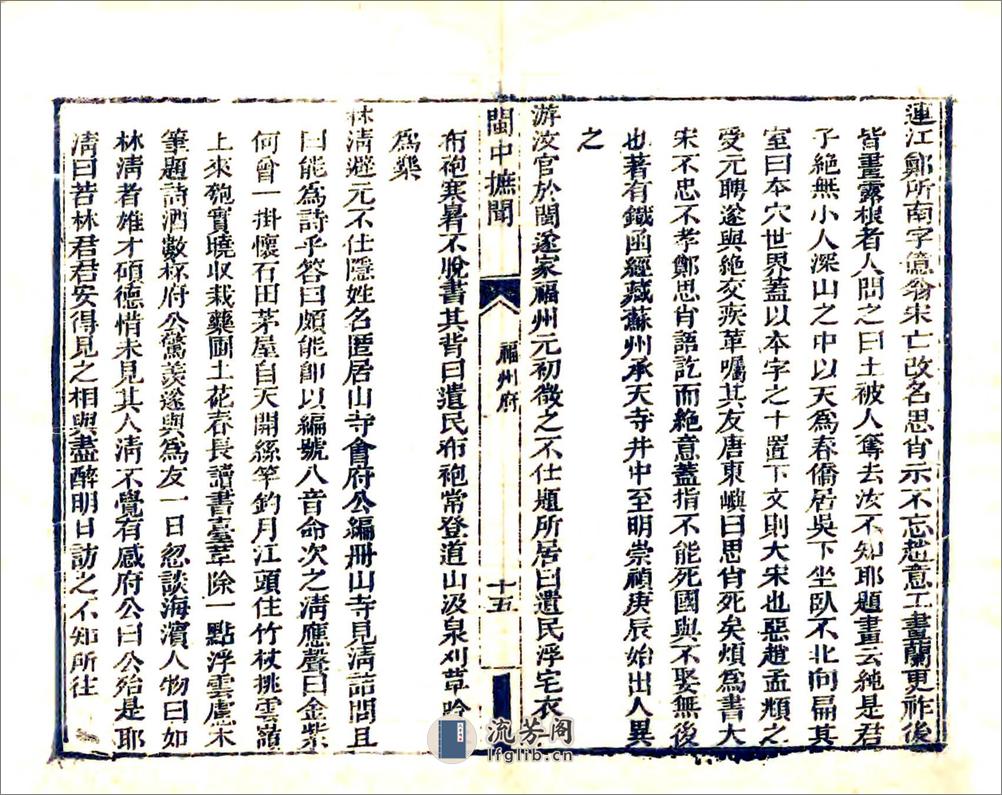 連江鄭所南字憶翁宋亡改名思肖示不忘趙意工畫蘭更祚後
皆畫露根者人問之曰土被人奪去汝不知耶題畫云純是君
子絕無小人深山之中以天爲春僑居吳下坐臥不北向扁其
室曰本穴世界蓋以本字之十置下文則大宋也惡趙孟頫之
受元聘遂與絕交疾革囑其友唐東嶼曰思肖死矣煩爲書大
宋不忠不孝鄭思肖語訖而絕意蓋指不能死國與不娶無後
也著有鐵函經藏蘇州承天寺井中至明崇禎庚辰始出人異
之
游汶官於閩遂家福州元初徵之不仕題所居曰遺民浮宅衣
閩中摭聞
福州府
十五
布袍寒暑不脫書其背曰遺民布袍常登道山汲泉刈草吟
爲樂
林清避元不仕隱姓名匿居山寺會府公編冊山寺見清詰問且
曰能爲詩乎答曰頗能卽以編號八音命次之清應聲曰金紫
何曾一掛懷石田茅屋自天開絲竿釣月江頭住竹杖挑雲嶺
上來匏實曉収栽藥圃土花春長讀書臺革除一點浮雲慮木
筆題詩酒數杯府公驚羨遂與爲友一日忽談海濱人物曰如
林清者雄才碩德惜未見其人清不覺有感府公曰公殆是耶
清曰若林君君安得見之相與盡醉明日訪之不知所往
流芳阁
lfglib.cn